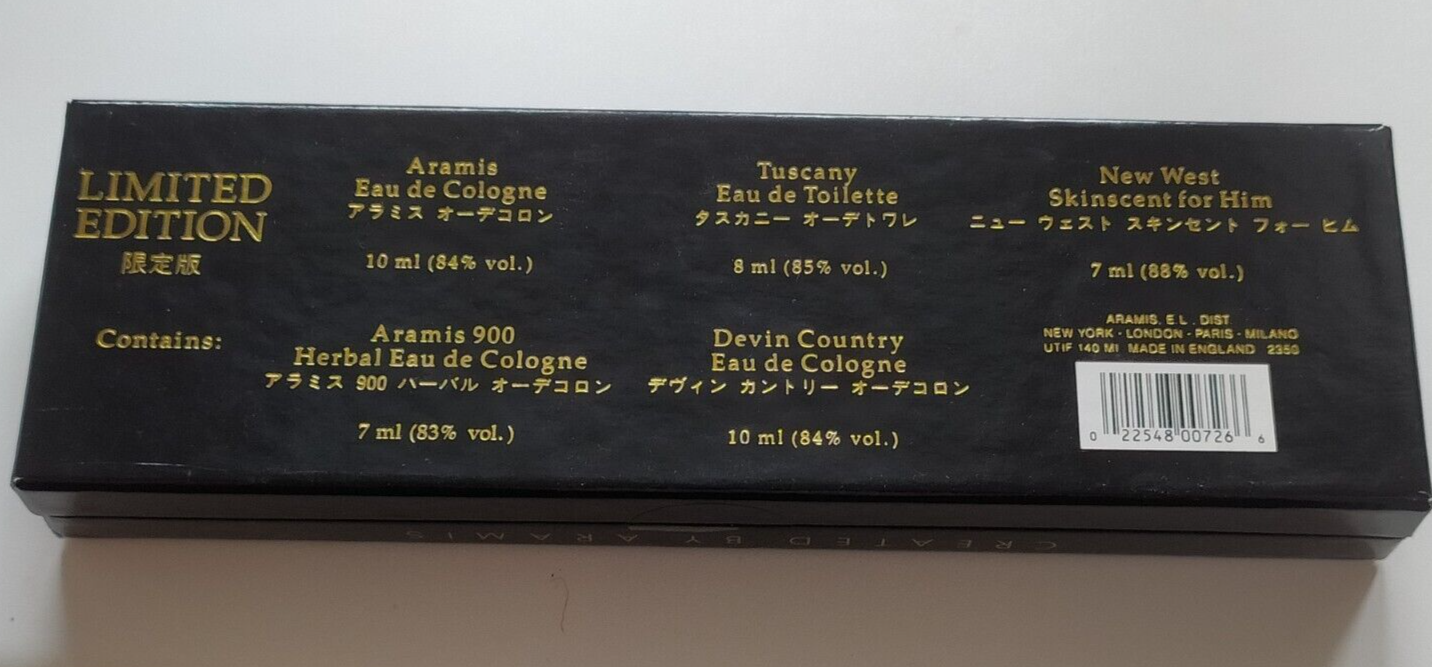 LIMITED
EDITION
限定版
Contains:
Aramis
Eau de Cologne
アラミス オーデコロン
10 ml (84% vol.)
Tuscany
Eau de Toilette
タスカニー オーデトワレ
8 ml (85% vol.)
New West
Skinscent for Him
ニュー ウェスト スキンセント フォー ヒム
7 ml (88% vol.)
Aramis 900
Herbal Eau de Cologne
アラミス 900 ハーバル オーデコロン
7 ml (83% vol.)
Devin Country
Eau de Cologne
デヴィン カントリー オーデコロン
10 ml (84% vol.)
ARAMIS, E.L. DIST
NEW YORK · LONDON · PARIS · MILANO
UTIF 140 MI MADE IN ENGLAND 2350
0 22548 00726 6
CREATED BY ARAMIS